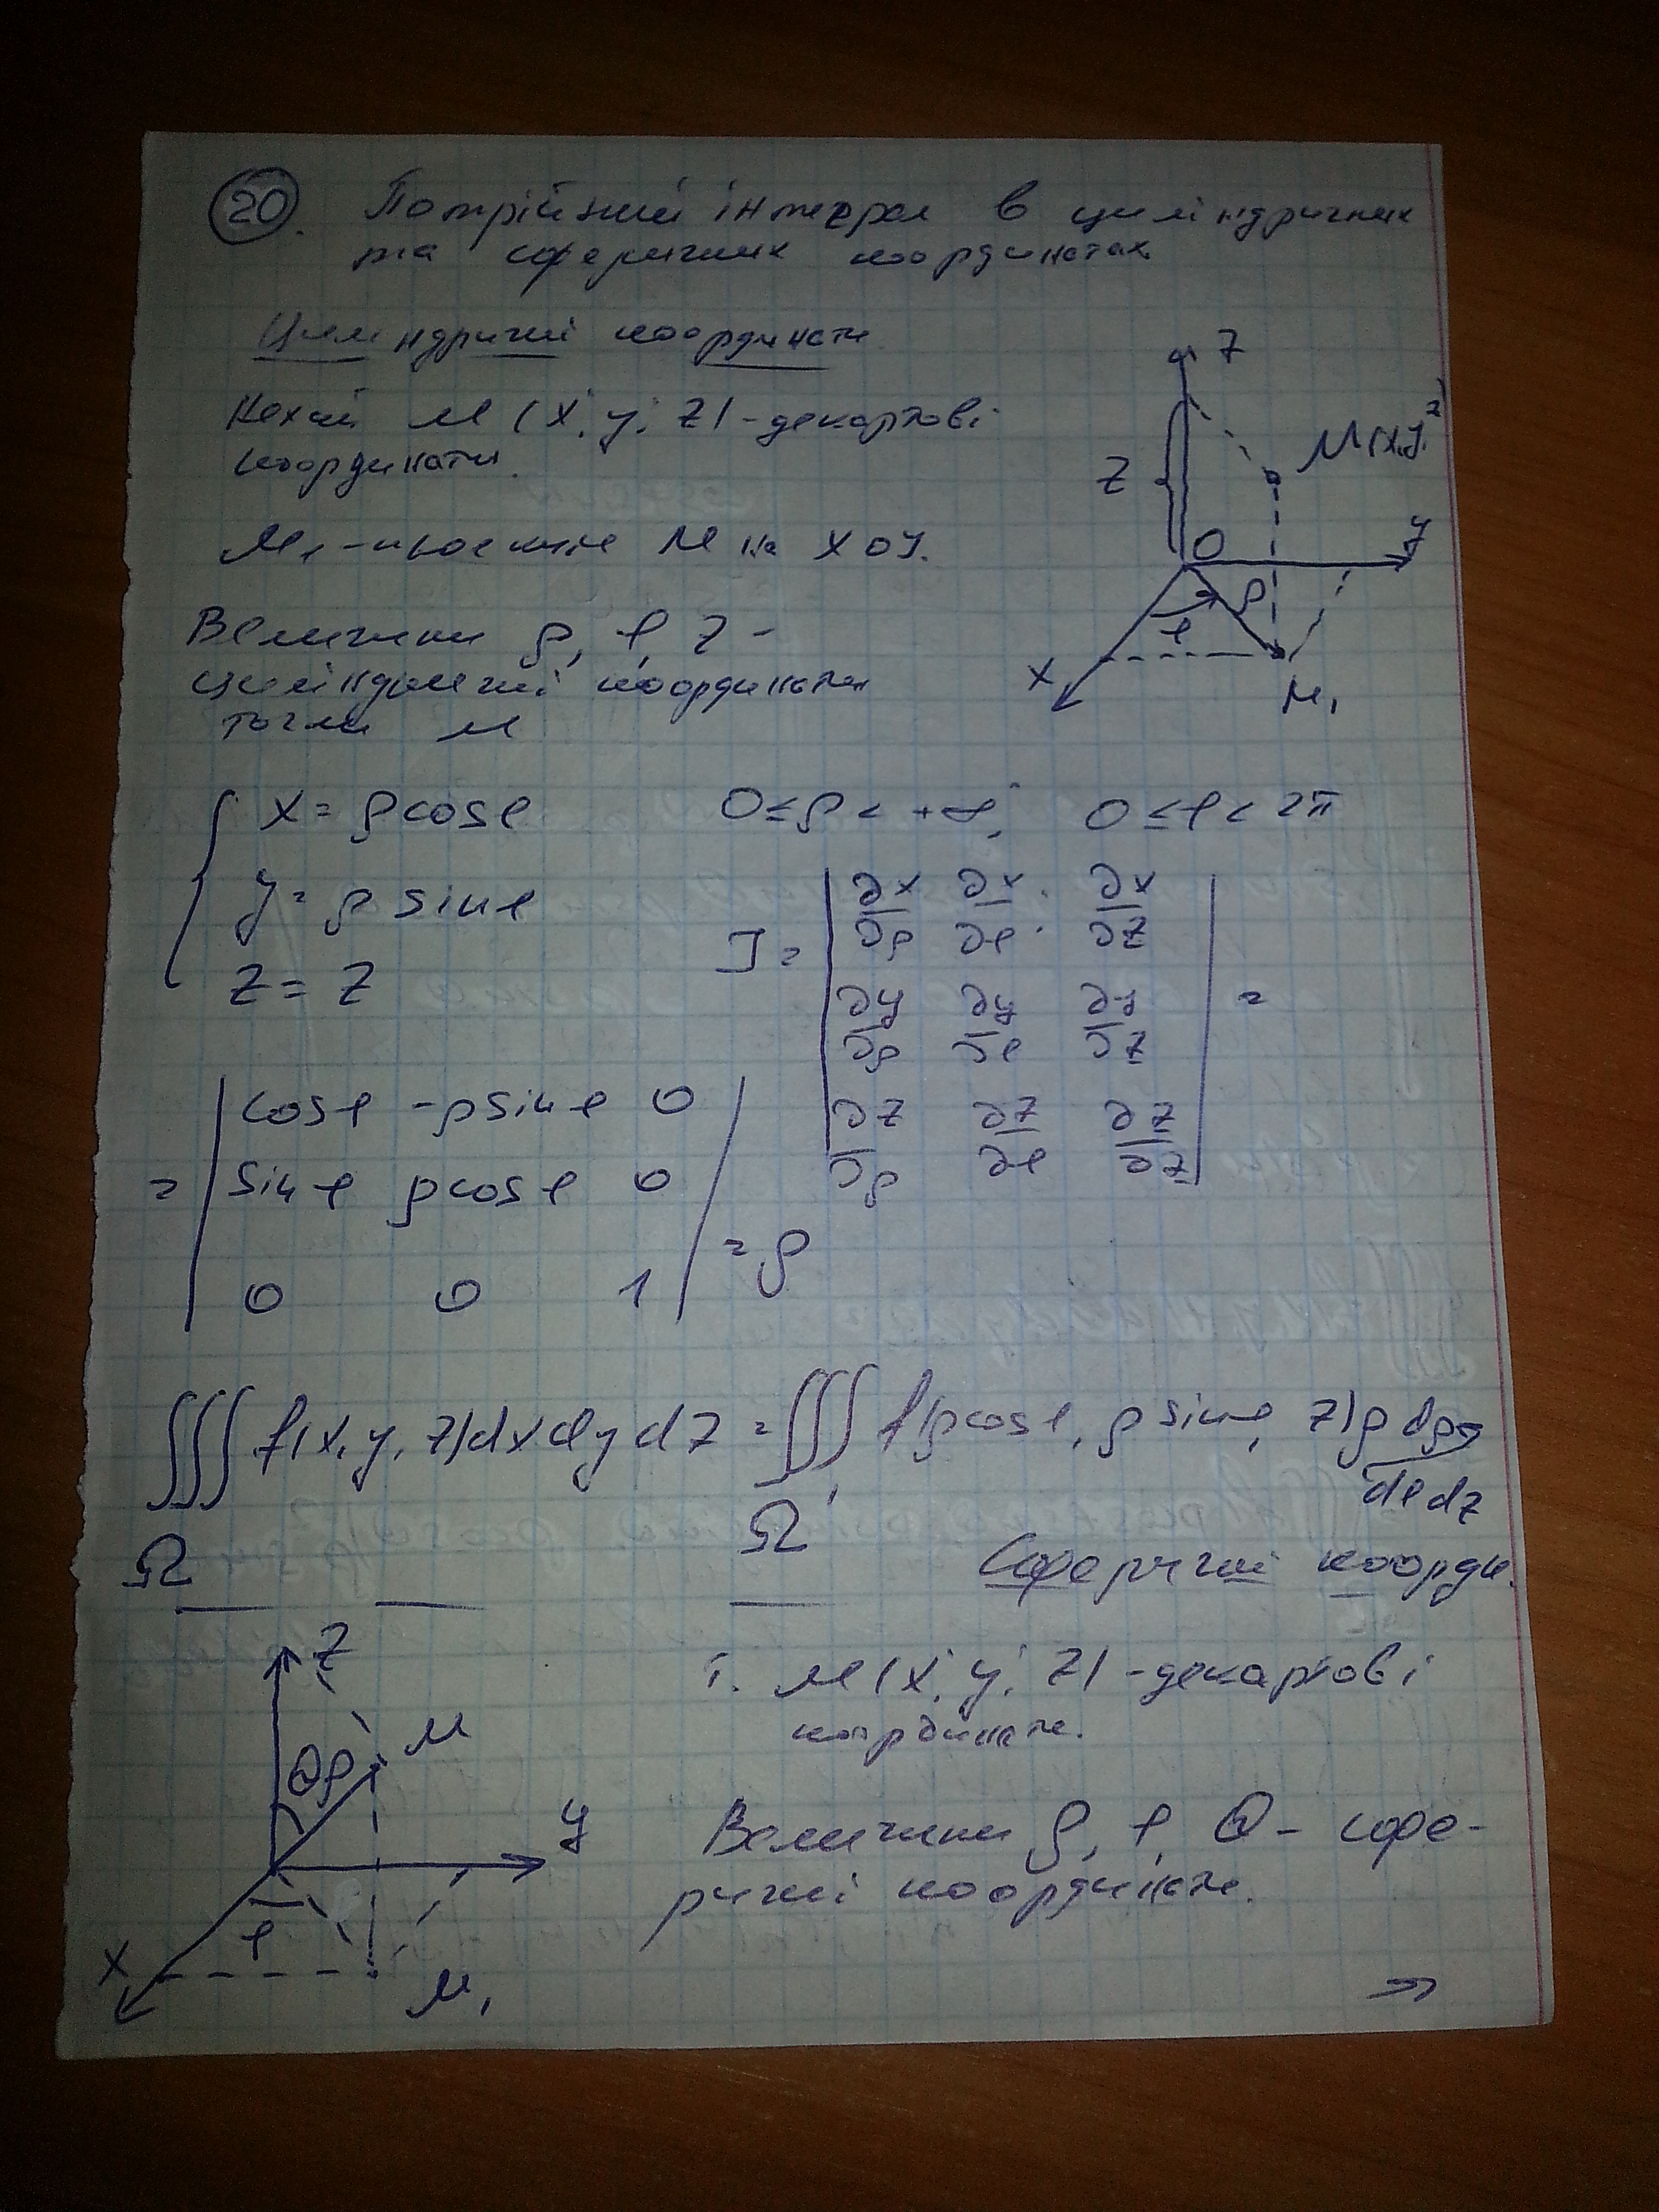 20. Потрійний інтеграл в циліндричних
та сферичних координатах
Циліндричні координати
Нехай M(x; y; z) - декартові
координати.
M₁ - проекція M на XOY.
Величини ρ, φ, z -
циліндричні координати
точки M
z
M(x, y, z)
z
O
y
ρ
φ
x
M₁
x = ρcosφ
y = ρ sinφ
z = z
0 ≤ ρ < +∞, 0 ≤ φ < 2π
J = | ∂x/∂ρ ∂x/∂φ ∂x/∂z |
| ∂y/∂ρ ∂y/∂φ ∂y/∂z | =
| ∂z/∂ρ ∂z/∂φ ∂z/∂z |
= | cosφ -ρsinφ 0 |
| sinφ ρcosφ 0 | = ρ
| 0 0 1 |
∭ f(x, y, z)dxdydz = ∭ f(ρcosφ, ρ sinφ, z)ρ dρ
dφdz
Ω Ω'
Сферичні коорди.
z
M
θ ρ
y
φ
x
M₁
і. M(x; y; z) - декартові
координати.
Величини ρ, φ, θ - сфе-
ричні координати.
⇒